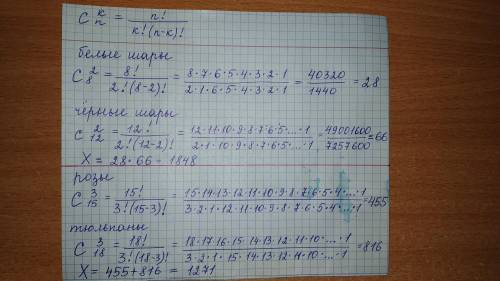 C k n = n! / k!(n-k)!
белые шары
C 2 8 = 8! / 2!(8-2)! = 8·7·6·5·4·3·2·1 / 2·1·6·5·4·3·2·1 = 40320 / 1440 = 28
чёрные шары
C 2 12 = 12! / 2!(12-2)! = 12·11·10·9·8·7·6·5·...·1 / 2·1·10·9·8·7·6·5·...·1 = 49001600 / 7257600 = 66
X = 28·66 = 1848
розы
C 3 15 = 15! / 3!(15-3)! = 15·14·13·12·11·10·9·8·7·6·5·4·...·1 / 3·2·1·12·11·10·9·8·7·6·5·4·...·1 = 455
тюльпаны
C 3 18 = 18! / 3!(18-3)! = 18·17·16·15·14·13·12·11·10·...·1 / 3·2·1·15·14·13·12·11·10·...·1 = 816
X = 455+816 = 1271